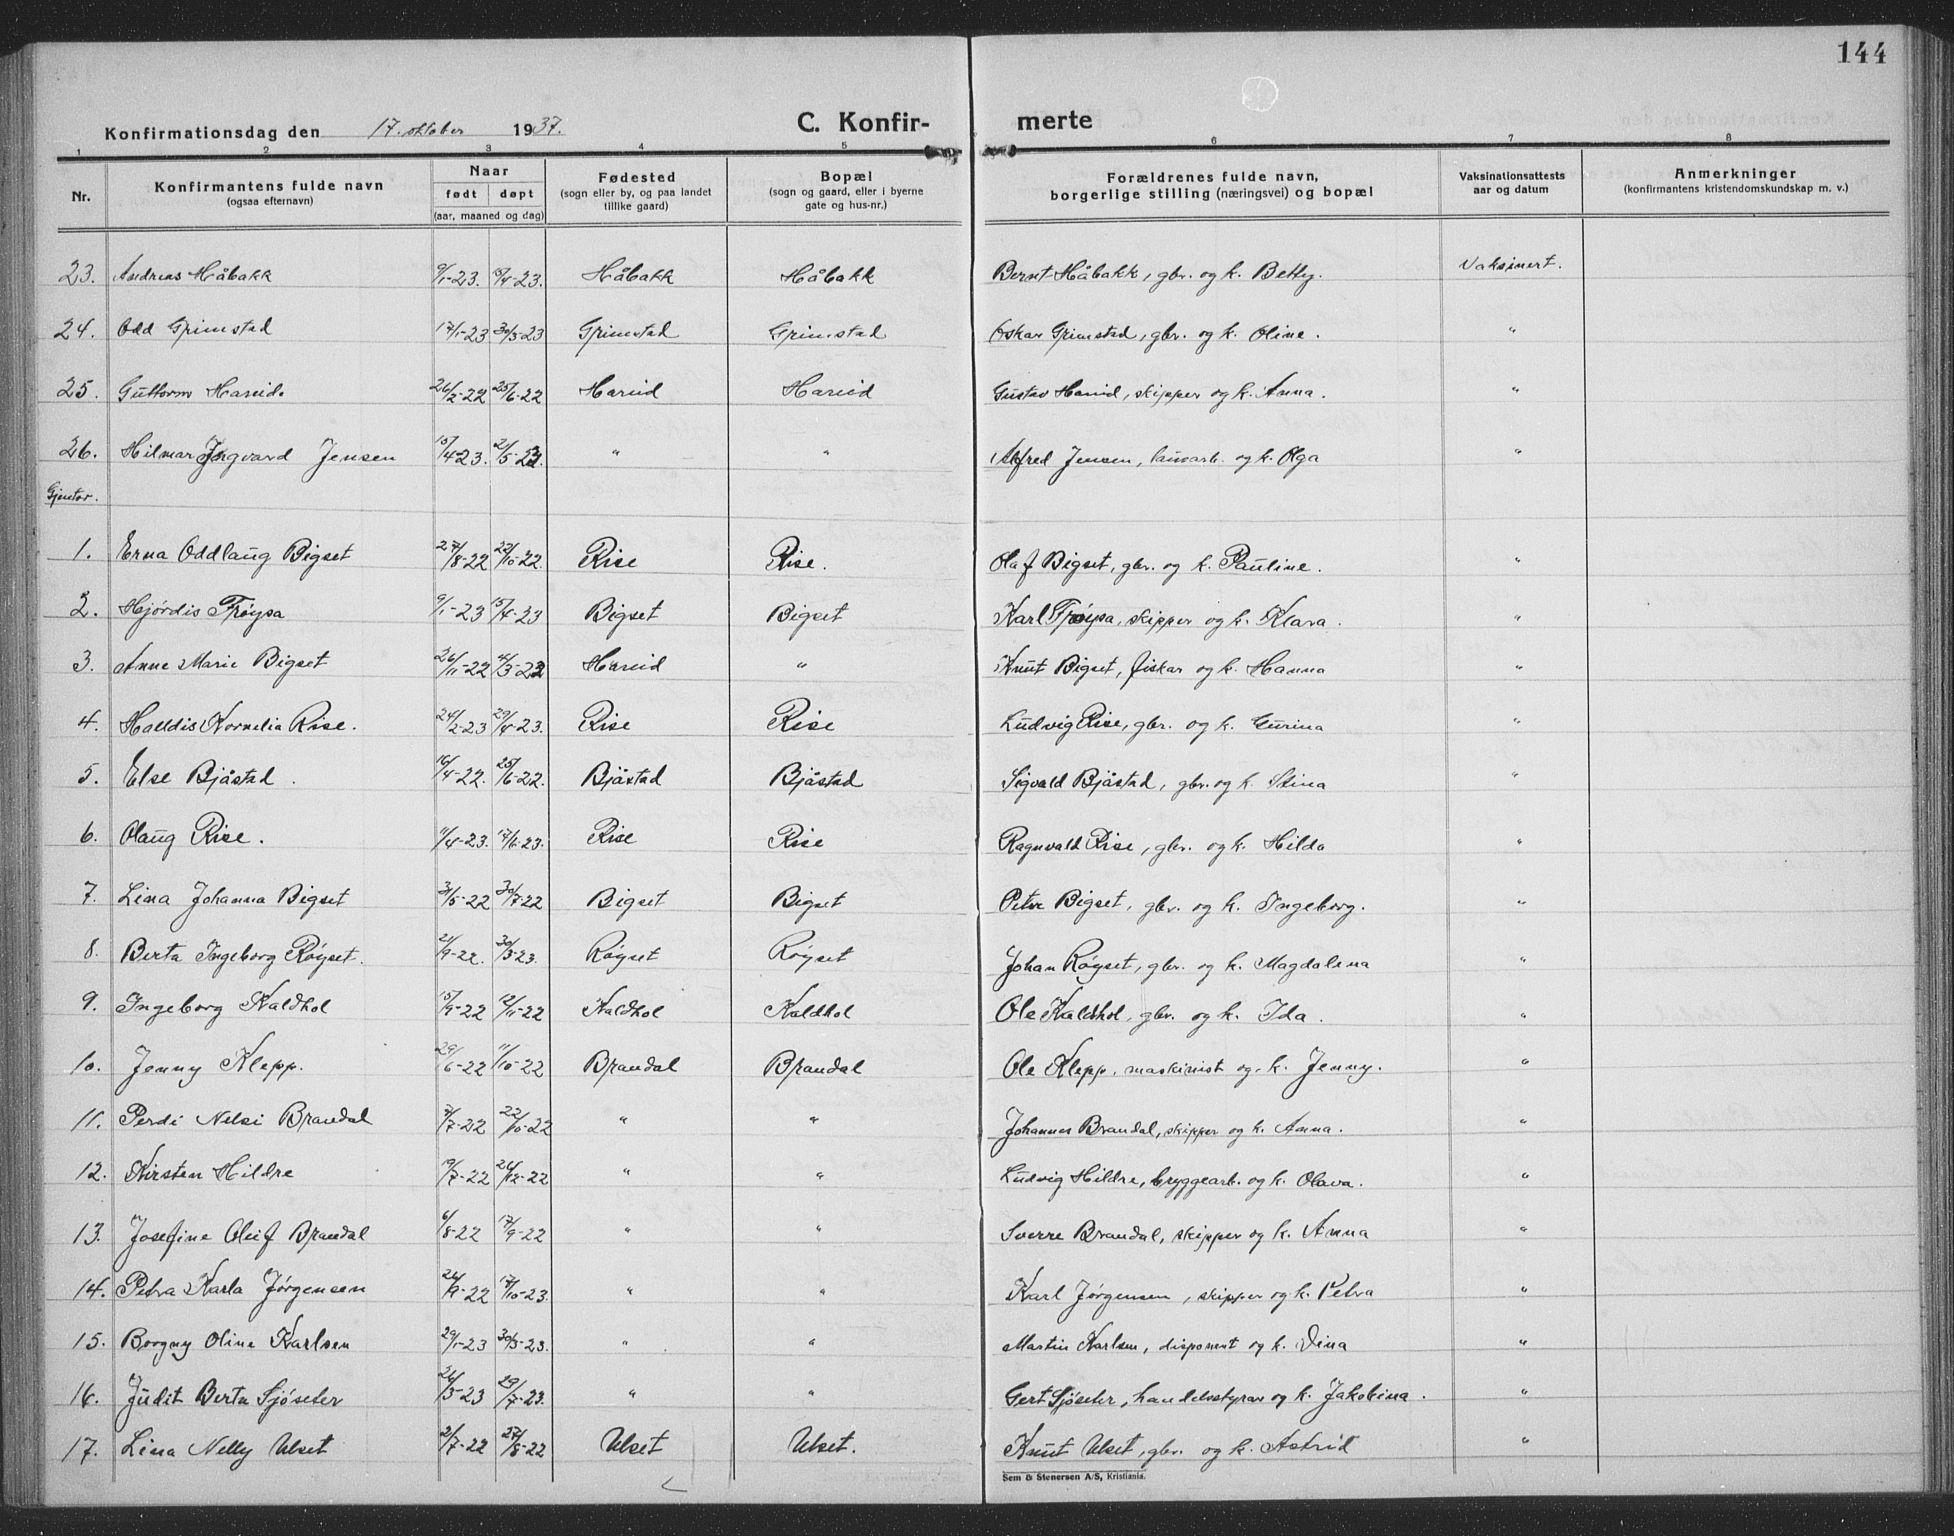 144
Konfirmationsdag den 17. oktober 1937. C. Konfir- merte
1 2 3 4 5 6 7 8
Nr. Konfirmantens fulde navn (ogsaa efternavn) Naar født døpt (aar, maaned og dag) Fødested (sogn eller by, og paa landet tillike gaard) Bopæl (sogn og gaard, eller i byerne gate og hus-nr.) Forældrenes fulde navn, borgerlige stilling (næringsvei) og bopæl Vaksinationsattests aar og datum Anmerkninger (konfirmantens kristendomskundskap m. v.)
23. Andreas Håbakk 9/1-23. 15/4-23. Håbakk Håbakk Bernt Håbakk, gbr. og k. Betty. Vaksinert.
24. Odd Grimstad 17/1-23 30/3-23 Grimstad Grimstad Oskar Grimstad, gbr. og k. Oline. "
25. Guttorm Hareid. 26/2-22 25/6-22 Hareid Hareid Gustav Hareid, skipper og k. Anna. "
26. Hilmar Ingvard Jensen 15/4-23. 21/5-23. " " Alfred Jensen, lausarb. og k. Olga "
Gjentor.
1. Erna Oddlaug Bigset 27/8-22 22/10-22. Rise Rise. Olaf Bigset, gbr. og k. Pauline. "
2. Hjördis Fröysa 9/1-23 15/4-23 Bigset Bigset Karl Fröysa, skipper og k. Klara. "
3. Anne Marie Bigset 26/11-22 4/3-23 Hareid " Knut Bigset, fiskar og k. Hanna "
4. Halldis Kornelia Rise. 24/2-23 29/4-23. Rise Rise Ludvig Rise, gbr. og k. Gurina "
5. Else Bjåstad. 16/4-22. 25/6-22. Bjåstad Bjåstad Sigvald Bjåstad, gbr. og k. Stina "
6. Olaug Rise. 11/4-23. 17/6-23. Rise Rise Ragnvald Rise, gbr. og k. Hilda "
7. Lina Johanna Bigset 31/5-22 30/7-22 Bigset Bigset Peter Bigset, gbr. og k. Ingeborg. "
8. Berta Ingeborg Röyset. 21/9-22. 30/3-23. Röyset Röyset Johan Röyset, gbr. og k. Magdalena "
9. Ingeborg Kaldhol 15/9-22 12/11-22 Kaldhol Kaldhol Ole Kaldhol, gbr. og k. Ida. "
10. Jenny Klepp. 29/6-22 11/10-22 Brandal Brandal Ole Klepp, maskinist og k. Jenny. "
11. Perdi Nelsi Brandal 3/7-22 22/10-22 " " Johannes Brandal, skipper og k. Anna. "
12. Kirsten Hildre 19/7-22 26/12-22 " " Ludvig Hildre, bryggearb. og k. Olava. "
13. Josefine Oleif Brandal 6/8-22 17/9-22 " " Sverre Brandal, skipper og k. Anna "
14. Petra Karla Jörgensen 24/9-22 17/10-23. " " Karl Jörgensen, skipper og k. Petra "
15. Borgny Oline Karlsen 29/1-23 30/3-23. " " Martin Karlsen, disponent og k. Dina "
16. Judit Berta Sjöseter 24/3-23 29/7-23. " " Gert Sjöseter, handelsstyrar og k. Jakobina. "
17. Lina Nelly Ulset 2/7-22 27/8-22 Ulset Ulset. Knut Ulset, gbr. og k. Astrid "
Sem & Stenersen A/S, Kristiania.